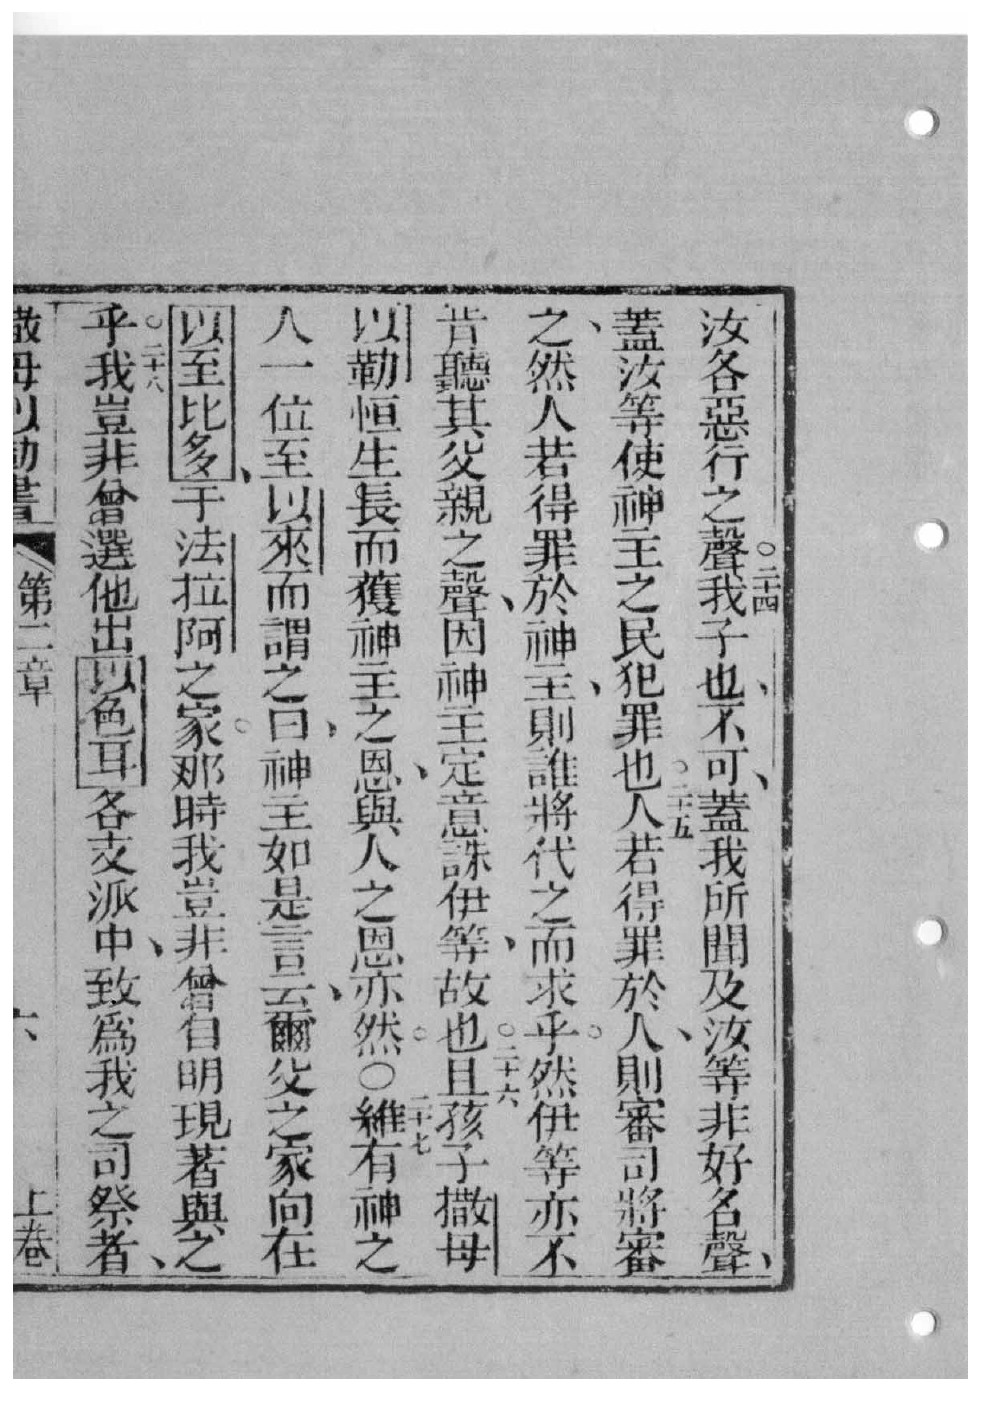 汝各惡行之聲○二十四我子也、不可、蓋我所聞及汝等非好名聲、
蓋汝等使神主之民犯罪也。二十五人若得罪於人、則審司將審
之、然人若得罪於神主、則誰將代之而求乎。然伊等亦不
肯聽其父親之聲、因神主定意誅伊等、故也○二十六且孩子撒母
以勒恒生長而獲神主之恩、與人之恩亦然。○二十七維有神之
人一位至以來而謂之曰、神主如是言云、爾父之家向在
以至比多、于法拉阿之家。那時我豈非曾自明現著與之
乎○二十八我豈非曾選他出以色耳各支派中、致爲我之司祭者、
撒母以勒書 第二章 六 上卷